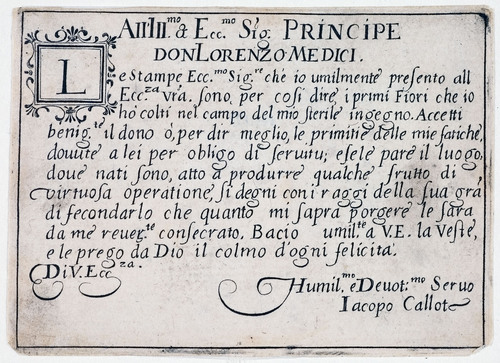 All Ill.mo & Ecc.mo Sig. PRINCIPE
DON LORENZO MEDICI.
Le Stampe Ecc.mo Sig.re che io umilmente presento all
Ecc.za vra. sono, per cosi dire, i primi Fiori che io
hò colti nel campo del mio sterile ingegno. Accetti
benig.te il dono ò, per dir meglio, le primitie delle mie fatiche,
douute a lei per obligo di seruitu; e se le pare il luogo,
doue nati sono, atto a produrre qualche frutto di
virtuosa operatione, si degni con i raggi della sua grã
di fecondarlo che quanto mi sapra porgere le sara
da me reuer.te consecrato. Bacio umil.te a V.E. la Veste,
e le prego da Dio il colmo d'ogni felicita.
Di V. Ecc.za.
Humil.mo e Deuot.mo Seruo
Iacopo Callot